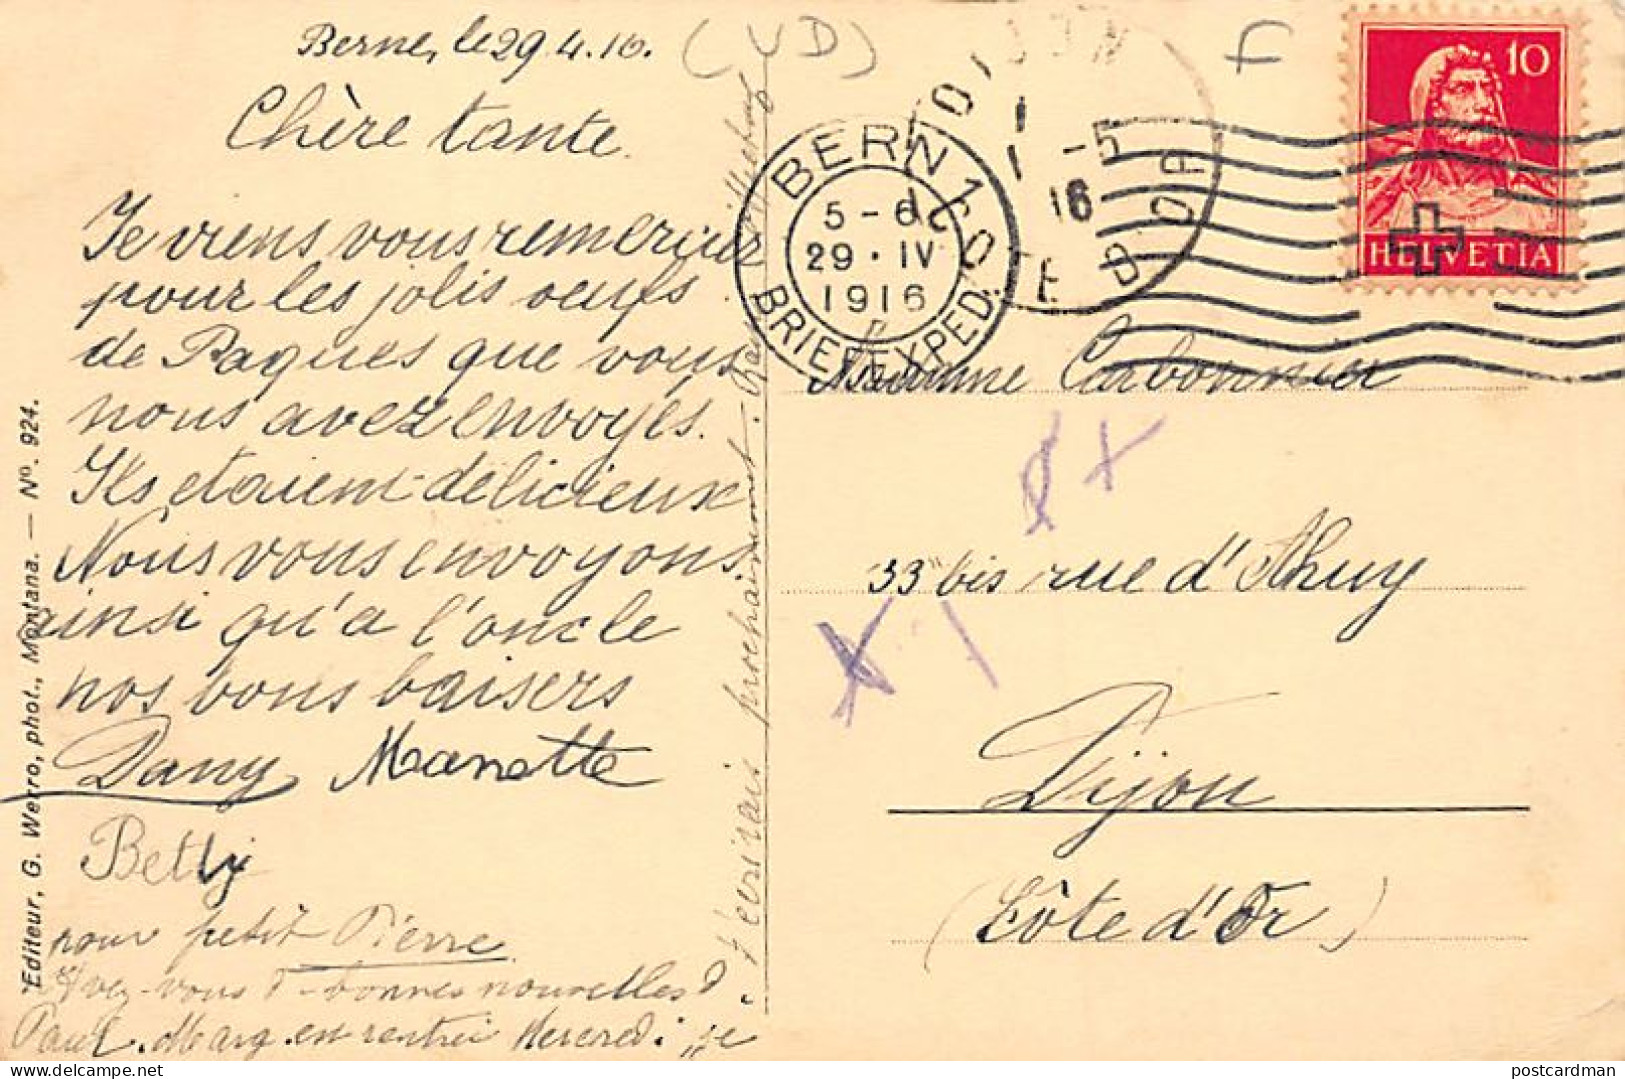 Berne, le 29.4.16.
Chère tante.
Je viens vous remercier
pour les jolis oeufs
de Paques que vous
nous avez envoyés.
Ils etaient délicieux
Nous vous envoyons
ainsi qu'a l'oncle
nos bons baisers
Dany Manette
Betty
pour petit Pierre
Avez-vous d bonnes nouvelles d
Paul. Marg. en rentrée Mercredi, je
t'écrirais prochainement.
Editeur, G. Werro, phot., Montana. — No. 924.
(VD)
BERN 1
5-6
29·IV
1916
BRIEFEXPED.
DIJON
1 -5
16
COTE D'OR
10
HELVETIA
Madame Carbonnier
33 bis rue d'Ahuy
Dijon
(Côte d'Or)
postcardman